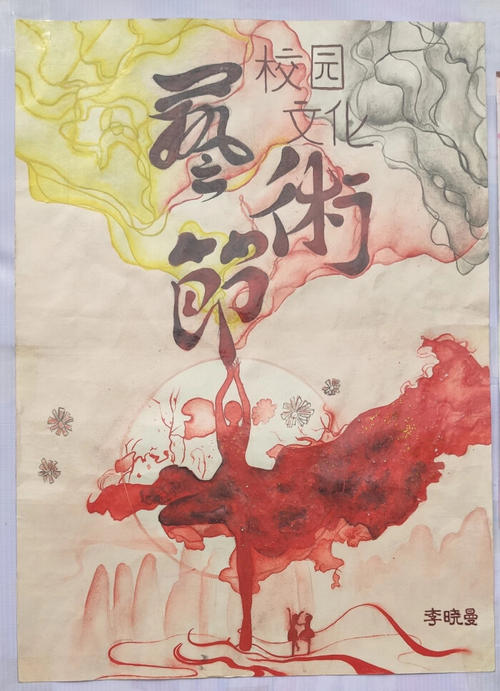 校园
文化
藝術
節
李晓曼